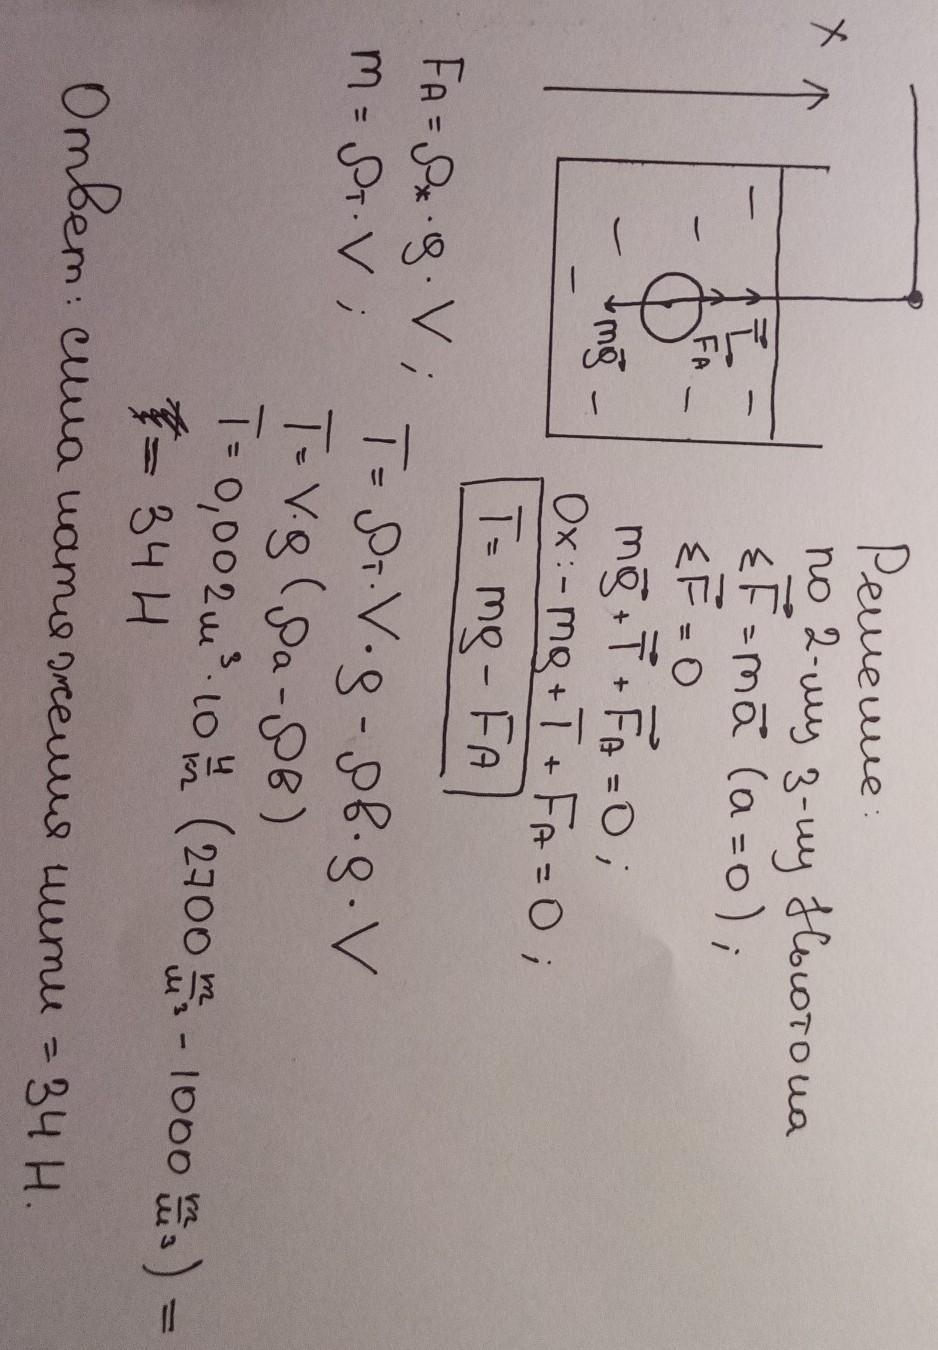 Решение:
по 2-му з-ну Ньютона
ΣF⃗ = ma⃗ (a = 0);
ΣF⃗ = 0
mg⃗ + T⃗ + F⃗A = 0;
Ox: -mg + T + FA = 0;
T = mg - FA
x
T⃗
F⃗A
mg⃗
FA = ρж · g · V;
m = ρт · V;
T = ρт · V · g - ρв · g · V
T = V · g (ρа - ρв)
T = 0,002м³ · 10 Н/т (2700 т/м³ - 1000 т/м³) =
= 34 Н
Ответ: сила натяжения нити = 34 Н.